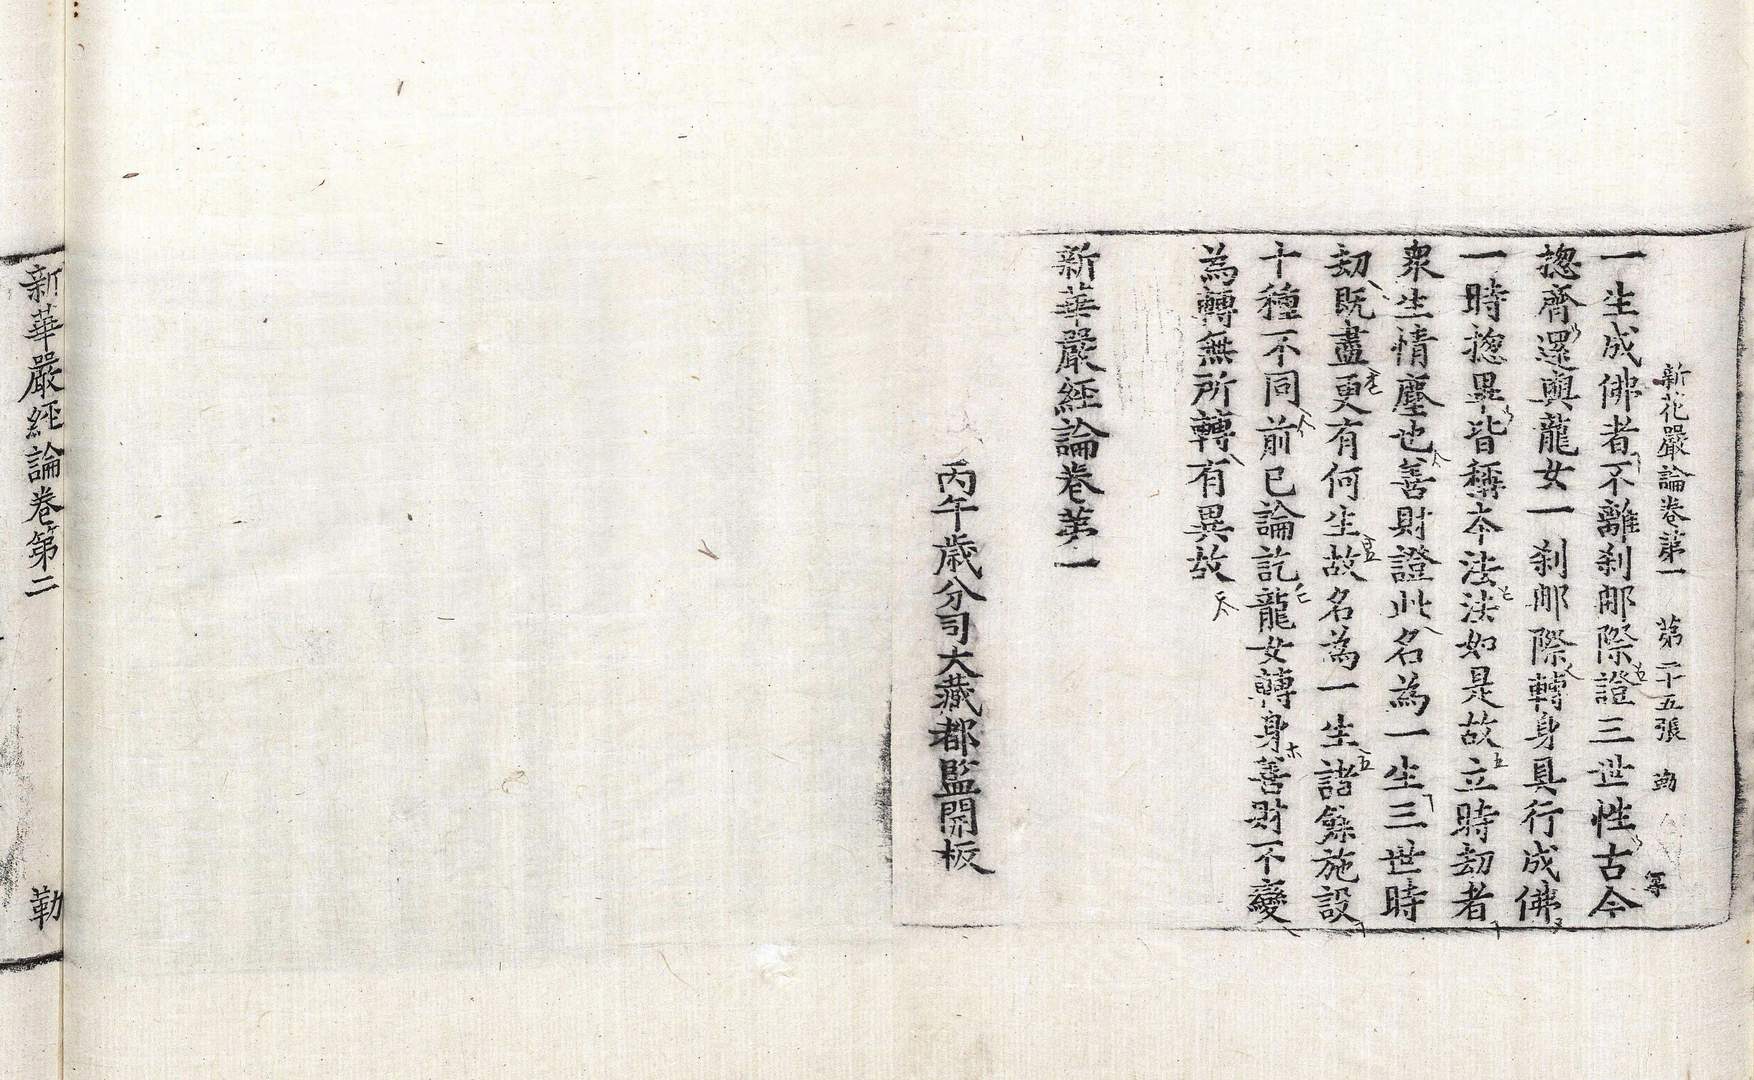 新花嚴論卷第一　第二十五張　勒
一生成佛者不離刹那際證三世性古今
揔齊還與龍女一刹那際轉身具行成佛
一時揔畢皆稱本法法如是故立時劫者
衆生情塵也善財證此名為一生三世時
劫旣盡更有何生故名為一生諸餘施設
十種不同前已論訖龍女轉身善財不變
為轉無所轉有異故
新華嚴經論卷第一
丙午歲分司大藏都監開板
新華嚴經論卷第二　勒